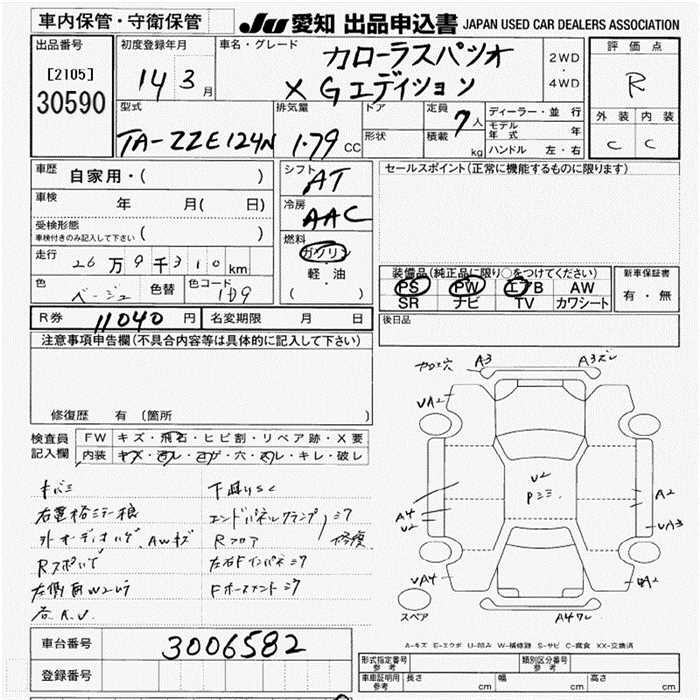 車内保管・守衛保管
JU 愛知 出品申込書 JAPAN USED CAR DEALERS ASSOCIATION
出品番号
[2105]
30590
初度登録年月
14 3月
車名・グレード
カローラスパシオ
X Gエディション
2WD
・
4WD
評価点
R
外装 内装
C C
型式
TA-ZZE124N
排気量
1.79 CC
ドア
形状
定員 7人
積載 kg
ディーラー・並行
モデル年式 年
ハンドル 左・右
車歴
自家用・( )
車検 年 月( 日)
受検形態
車検付きのみ記入して下さい ( )
走行 26万9千310km
色 ベージュ 色替 色コード
シフト AT
冷房 AAC
燃料
ガソリン
・
軽・油
( )
セールスポイント(正常に機能するものに限ります)
装備品(純正品に限り○をつけてください)
PS PW エアB AW
SR ナビ TV カワシート
新車保証書
有・無
R券 11040円 名変期限 月 日
後日品
注意事項申告欄(不具合内容等は具体的に記入して下さい)
修復歴 有 (箇所
検査員記入欄
FW キズ・飛石・ヒビ割・リペア跡・X要
内装 キズ・汚レ・コゲ・穴・スレ・キレ・破レ
キバミ
下廻りSC
エンドパネルクランプ
Rフロア
修復
AWキズ
左右Fインパネ
カロエ穴 A3
A3ズレ
VA2
U2
A4
U2
A2
VA3
VA4
スペア
A-キズ E-エクボ U-凹み W-補修跡 S-サビ C-腐食 XX-交換済
車台番号 3006582
登録番号
形式指定番号
参考
類別区分番号
参考
車庫証明用
参考
長さ cm 幅 cm 高さ cm